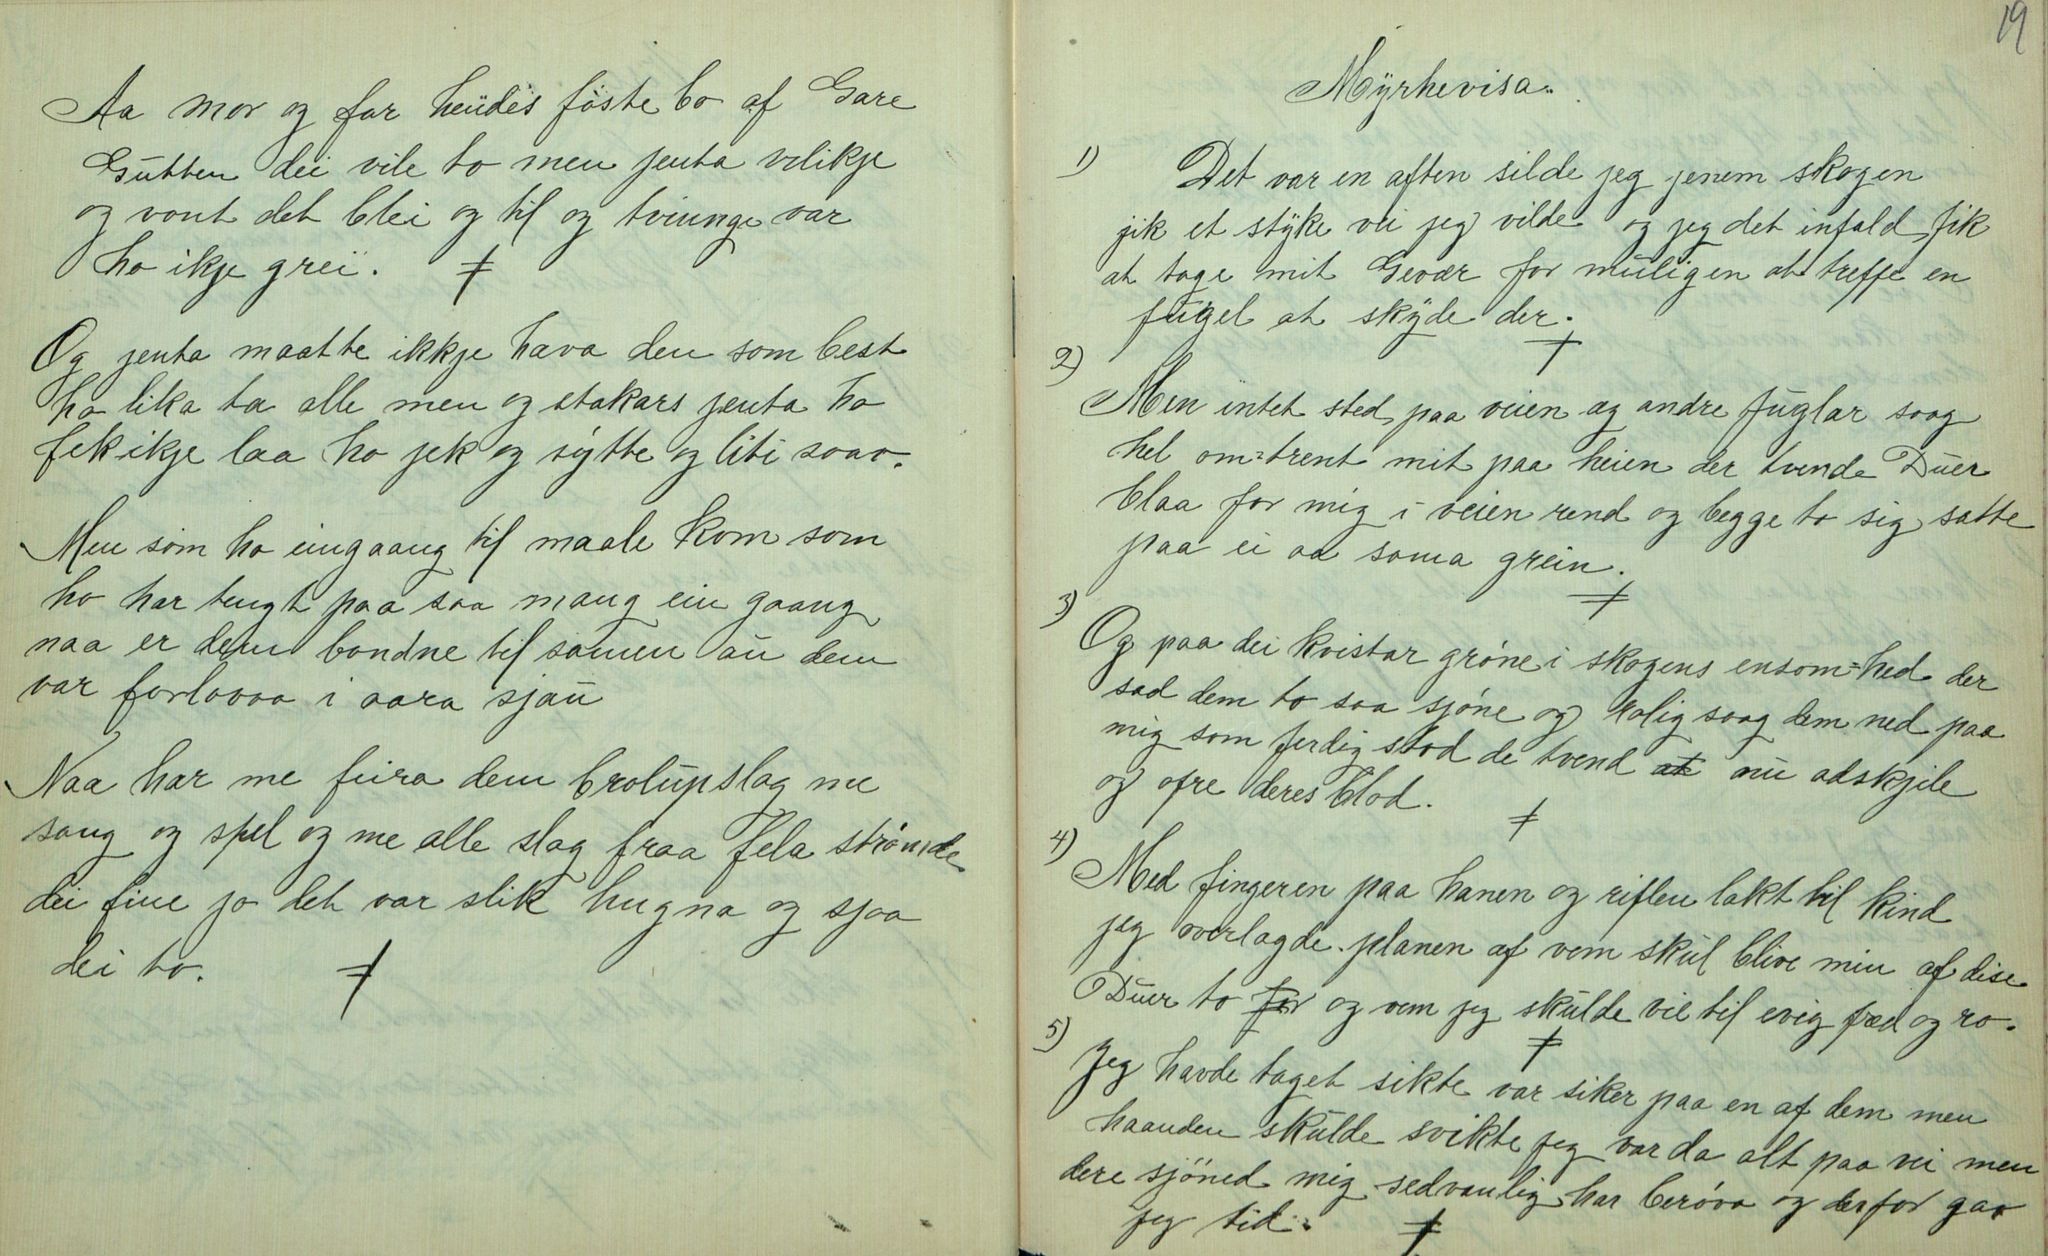 Aa mor og far heudes föste bo af Gare
Gutten dei vile to men jenta vilikje
og vont det blei og til og tvinnge var
ho ikje grei. ≠
Og jenta maatte ikkje hava den som best
ho lika ta alle men og stakars jenta ho
fek ikje laa ho jek og sytte og liti soav.
Men som ho eingaang til maale kom som
ho har tengt paa saa mang ein gaang
naa er dem bondne til samen au dem
var forlovaa i aara sjau
Naa har me feira dem brolupslag me
sang og spel og me alle slag fraa fela strømde
dei fine jo det var slik hugna og sjaa
dei to. ≠
19
Myrhevisa..
1) Det var en aften silde jeg jenem skogen
jik et styke vei jeg vilde og jeg det infald fik
at tage mit Gevær for muligen at treffe en
fugel at skyde der. ≠
2) Men intet sted paa veien ag andre fuglar saag
hel om=trent mit paa heien der tvende Duer
blaa for mig i veien rend og begge to sig satte
paa ei aa sama grein. ≠
3) Og paa dei kvistar grøne i skogens ensom=hed der
sad dem to saa sjøne og rolig saag dem ned paa
mig som ferdig stod de tvend at nu adskjile
og ofre deres blod. ≠
4) Med fingeren paa hanen og riflen lakt til kind
jeg overlagde planen af vem skul blive min af dise
Duer to for og vem jeg skulde vie til evig fred og ro.
≠
5) Jeg havde taget sikte var siker paa en af dem men
haanden skulde svikte jeg var da alt paa vei men
dere sjöned mig sedvanlig har berøva og derfor gav
jeg tid. ≠